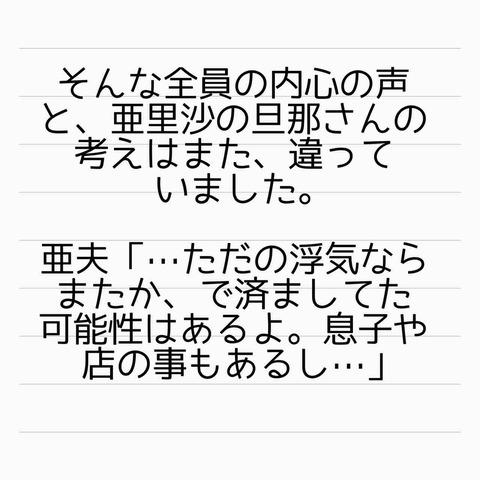 そんな全員の内心の声
と、亜里沙の旦那さんの
考えはまた、違って
いました。
亜夫「…ただの浮気なら
またか、で済ましてた
可能性はあるよ。息子や
店の事もあるし…」